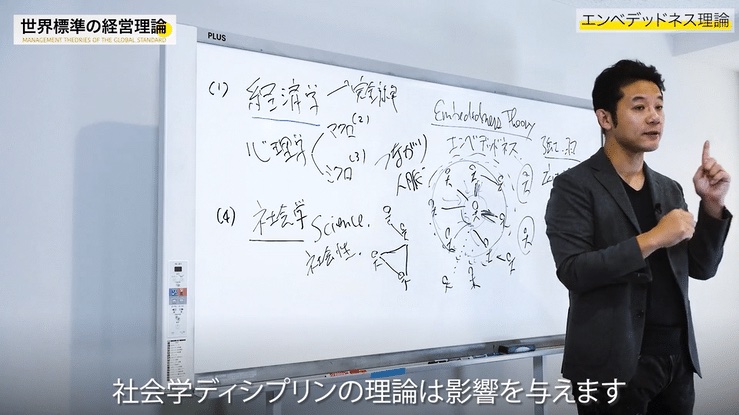 世界標準の経営理論
MANAGEMENT THEORIES OF THE GLOBAL STANDARD
エンベデッドネス理論
PLUS
(1) 経済学
Embeddedness Theory
心理学 マクロ(2)
エンベデッドネス
ミクロ(3) つながり
人脈
(4) 社会学 Science.
社会性.
社会学ディシプリンの理論は影響を与えます